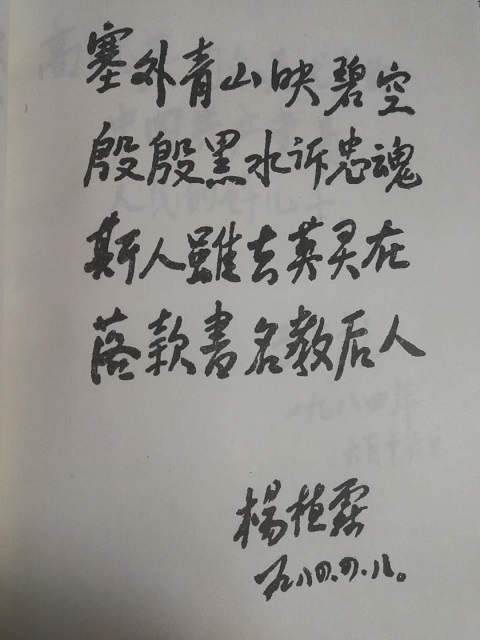 塞外青山映碧空
殷殷黑水诉忠魂
斯人虽去英灵在
落款書名教后人
楊植霖
一九八四.四.八。